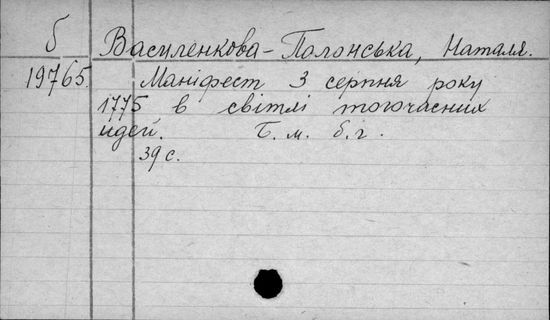 б Василенкова-Полонська, Наталя.
19765. Маніфест 3 серпня року
1775 в світлі тогочасних
ідей. Б. м. б. г.
39 с.